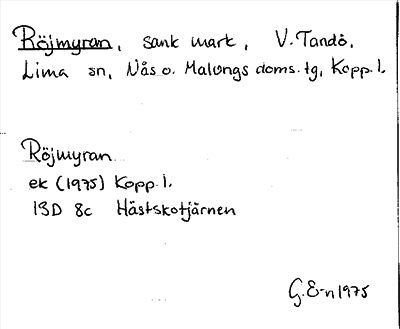 Röjmyran, sank mark, V. Tandö,
Lima sn, Nås o. Malungs doms. tg, Kopp. l.
Röjmyran
ek (1975) Kopp. l.
13D 8c Hästskotjärnen
G. E-n 1975